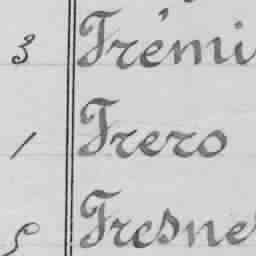 3 Frémi
1 Frero
5 Fresne